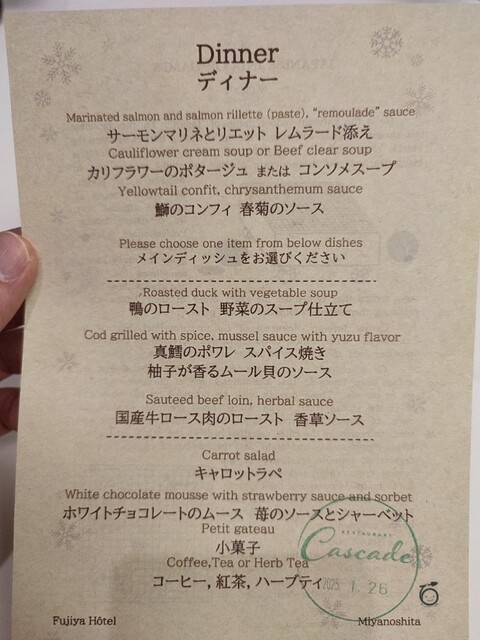 Dinner
ディナー
Marinated salmon and salmon rillette (paste), "remoulade" sauce
サーモンマリネとリエット レムラード添え
Cauliflower cream soup or Beef clear soup
カリフラワーのポタージュ または コンソメスープ
Yellowtail confit, chrysanthemum sauce
鰤のコンフィ 春菊のソース
Please choose one item from below dishes
メインディッシュをお選びください
Roasted duck with vegetable soup
鴨のロースト 野菜のスープ仕立て
Cod grilled with spice, mussel sauce with yuzu flavor
真鱈のポワレ スパイス焼き
柚子が香るムール貝のソース
Sauteed beef loin, herbal sauce
国産牛ロース肉のロースト 香草ソース
Carrot salad
キャロットラペ
White chocolate mousse with strawberry sauce and sorbet
ホワイトチョコレートのムース 苺のソースとシャーベット
Petit gateau
小菓子
Coffee,Tea or Herb Tea
コーヒー, 紅茶, ハーブティ
RESTAURANT
Cascade
2025 1.26
Fujiya Hôtel
Miyanoshita